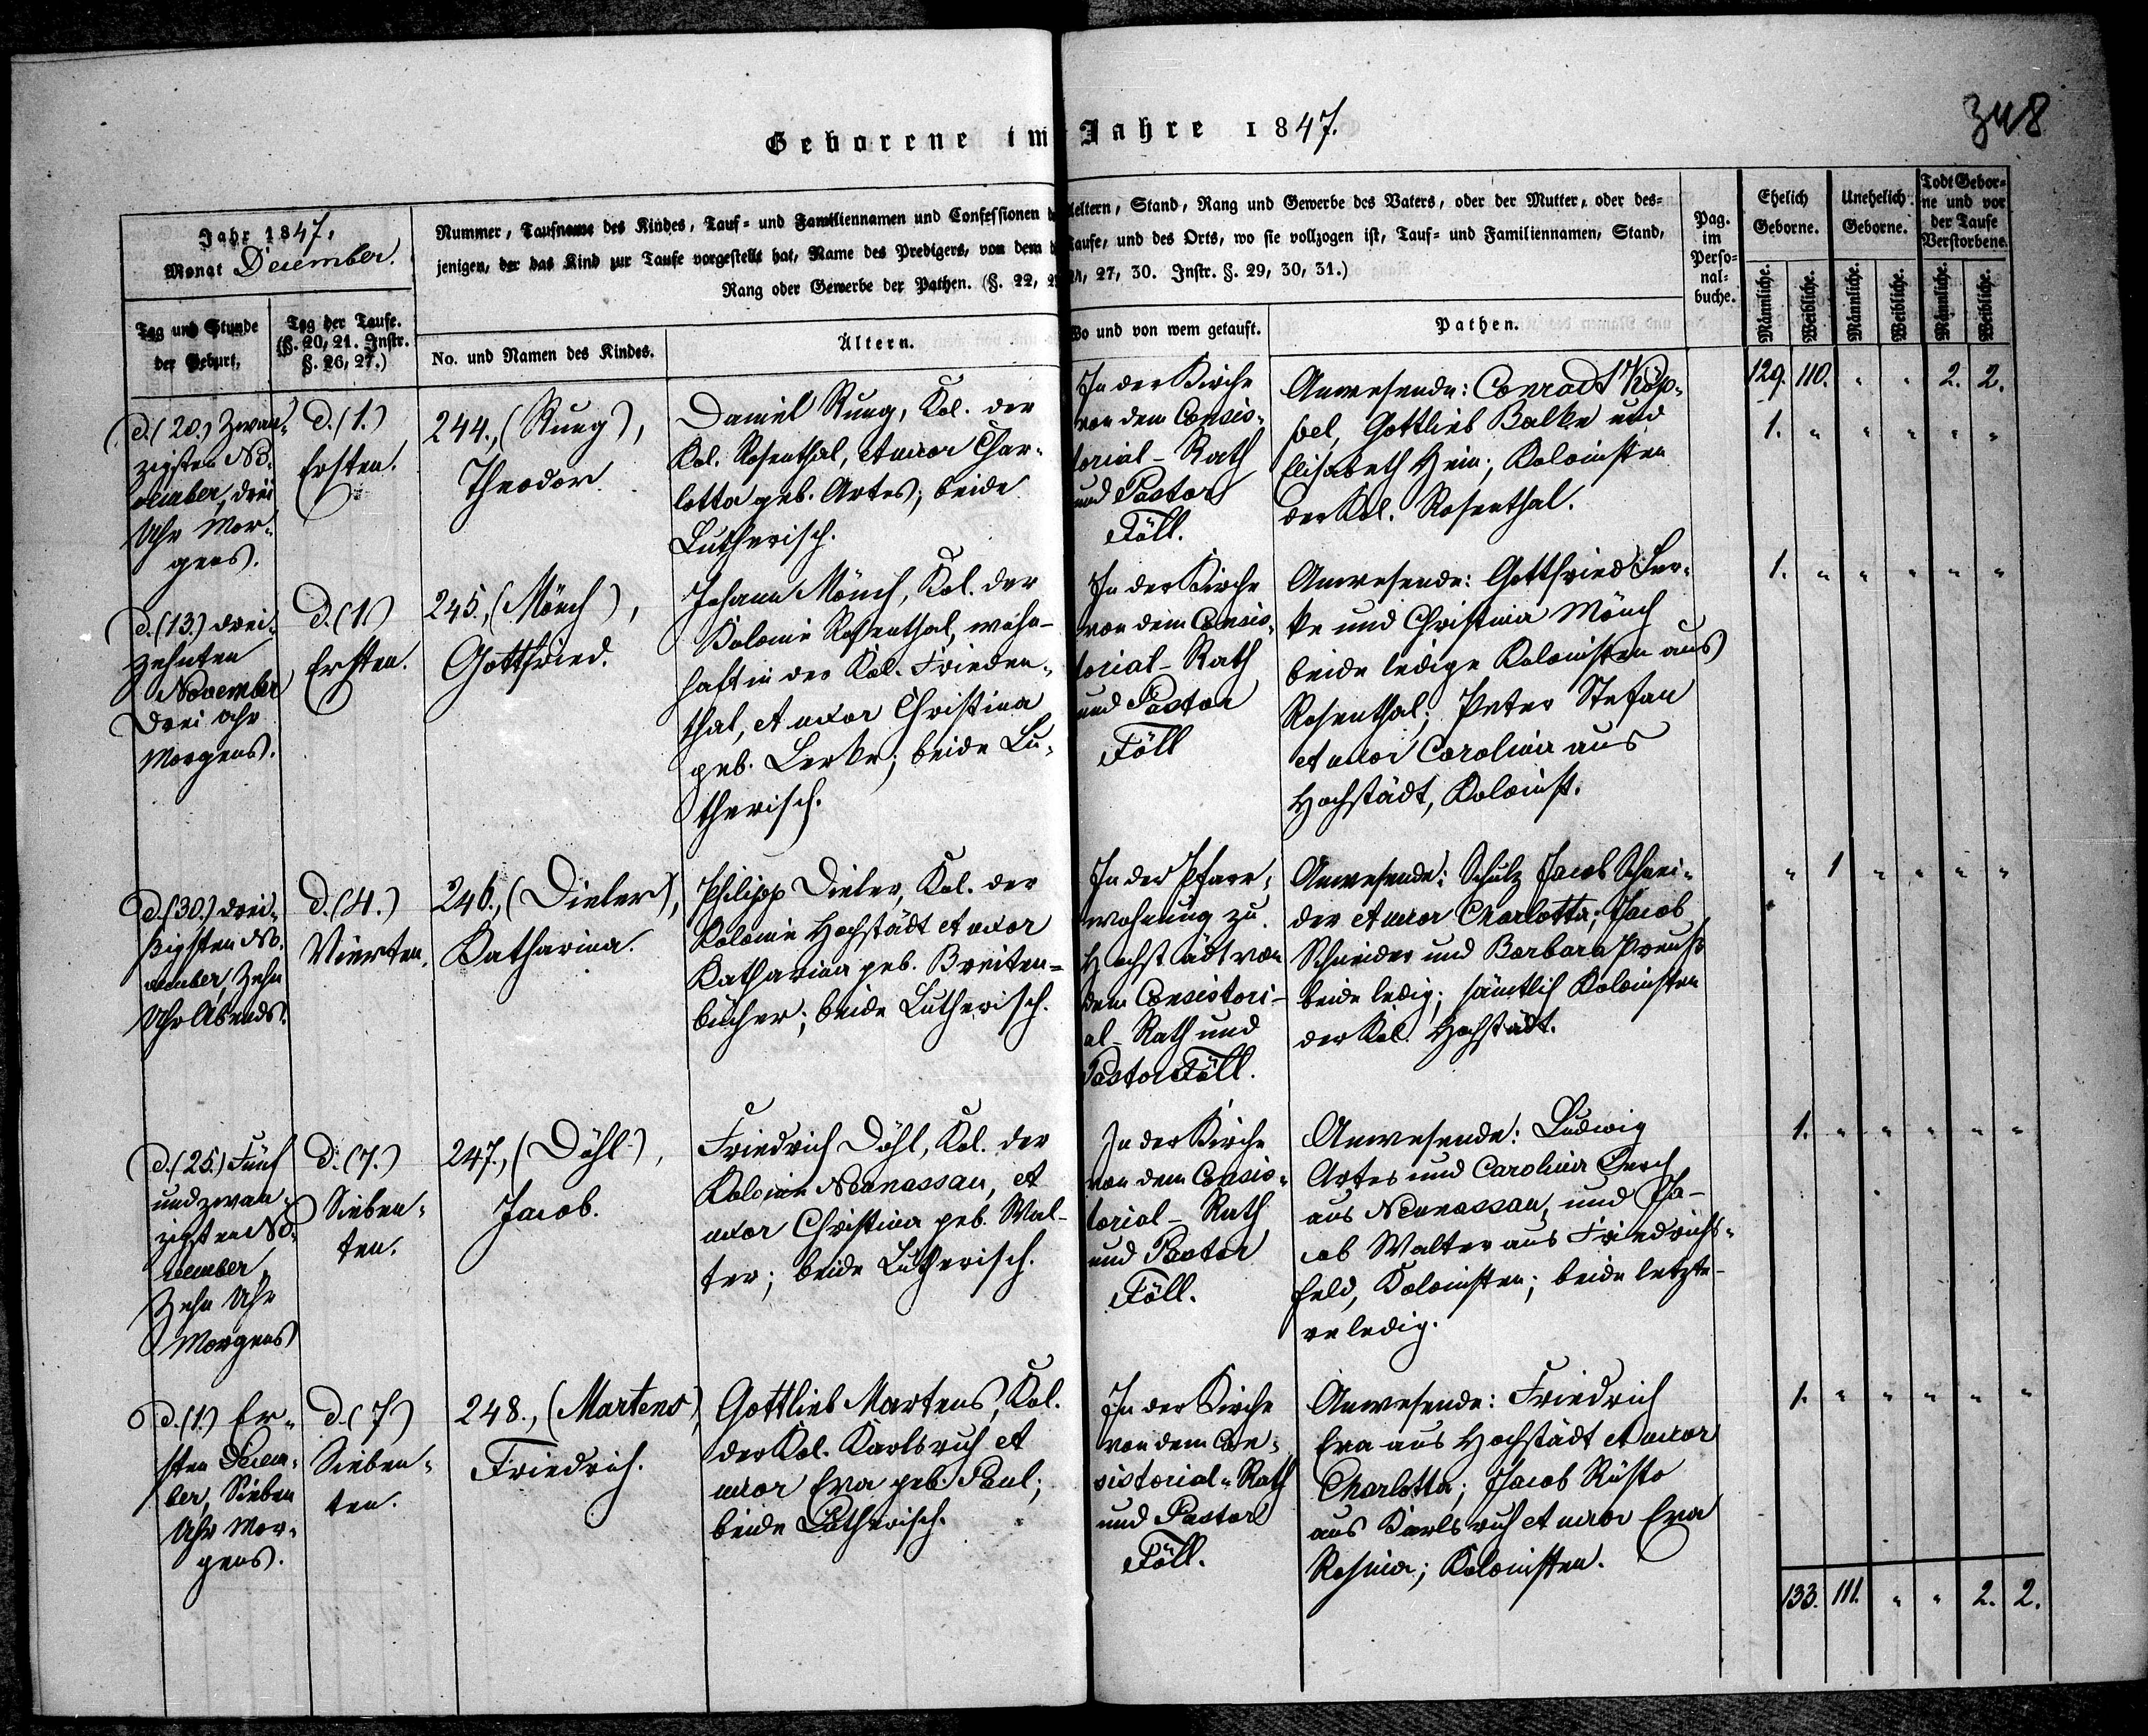 348
Geborene im Jahre 1847.
Jahr 1847,
Monat December.
Nummer, Taufname des Kindes, Tauf- und Familiennamen und Confessionen d
Aeltern, Stand, Rang und Gewerbe des Vaters, oder der Mutter, oder des-
jenigen, der das Kind zur Taufe vorgestellt hat, Name des Predigers, von dem d
Taufe, und des Orts, wo sie vollzogen ist, Tauf- und Familiennamen, Stand,
Rang oder Gewerbe der Pathen. (§. 22, 2
27, 30. Instr. §. 29, 30, 31.)
Pag.
im
Perso-
nal-
buche.
Ehelich
Geborne.
Unehelich
Geborne.
Todt Gebor-
ne und vor
der Taufe
Verstorbene.
Männliche.
Weibliche.
Männliche.
Weibliche.
Männliche.
Weibliche.
Tag und Stunde
der Geburt,
Tag der Taufe.
(§. 20, 21. Instr.
§. 26, 27.)
No. und Namen des Kindes.
Ältern.
Wo und von wem getauft.
Pathen.
129. 110. " " 2. 2.
d. (20.) Zwan-
zigsten No-
vember, drei
Uhr Mor-
gens.
d. (1.)
Ersten.
244., (Rung),
Theodor.
Daniel Rung, Kol. der
Kol. Rosenthal, et uxor Char-
lotta geb. Artes; beide
Lutherisch.
In der Kirche
von dem Consis-
torial-Rath
und Pastor
Föll.
Anwesende: Conradt Köp-
pel, Gottlieb Balke und
Elisabeth Hein; Kolonisten
der Kol. Rosenthal.
1. " " " " "
d. (13.) drei-
zehnten
November
Drei Uhr
Morgens.
d. (1.)
Ersten.
245., (Mönch),
Gottfried.
Johann Mönch, Kol. der
Kolonie Rosenthal, wohn-
haft in der Kol. Frieden-
thal, et uxor Christina
geb. Lerke; beide Lu-
therisch.
In der Kirche
von dem Consis-
torial-Rath
und Pastor
Föll
Anwesende: Gottfried Ler-
ke und Christina Mönch
beide ledige Kolonisten aus
Rosenthal; Peter Stefan
et uxor Carolina aus
Hochstädt, Kolonist.
1. " " " " "
d. (30.) drei-
ßigsten No-
vember, Zehn
Uhr Abends.
d. (4.)
Vierten.
246., (Dieler),
Katharina.
Philipp Dieler, Kol. der
Kolonie Hochstädt et uxor
Katharina geb. Breiten-
bücher; beide Lutherisch.
In der Pfarr-
wohnung zu
Hochstädt von
dem Consistori-
al-Rath und
Pastor Föll.
Anwesende: Schulz Jacob Schnei-
der et uxor Charlotta; Jacob
Schneider und Barbara Preuß
beide ledig; sämtlich Kolonisten
der Kol. Hochstädt.
" 1 " " " "
d. (25.) Fünf
und zwan-
zigsten No-
vember,
Zehn Uhr
Morgens
d. (7.)
Sieben-
ten.
247., (Döhl),
Jacob.
Friedrich Döhl, Kol. der
Kolonie Neunassau, et
uxor Christina geb. Wal-
ter; beide Lutherisch.
In der Kirche
von dem Consis-
torial-Rath
und Pastor
Föll.
Anwesende: Ludwig
Artes und Carolina
aus Neunassau, und Ja-
cob Walter aus Friedrichs-
feld, Kolonisten; beide letzte-
re ledig.
1. " " " " "
d. (1.) Er-
sten Decem-
ber, Sieben
Uhr Mor-
gens.
d. (7.)
Sieben-
ten.
248., (Martens),
Friedrich.
Gottlieb Martens, Kol.
der Kol. Karlsruh et
uxor Eva geb. Paul;
beide Lutherisch.
In der Kirche
von dem Con-
sistorial-Rath
und Pastor
Föll.
Anwesende: Friedrich
Eva aus Hochstädt et uxor
Charlotta; Jacob Rösto
aus Karlsruh et uxor Eva
Rosina; Kolonisten.
1. " " " " "
133. 111. " " 2. 2.